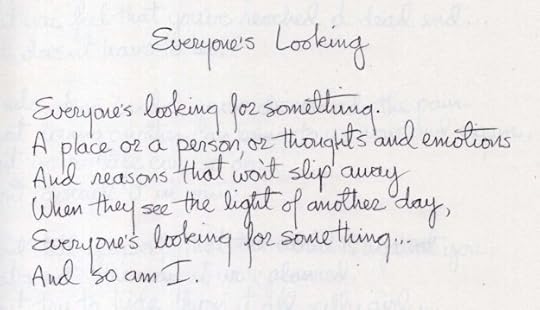 Everyone's Looking
Everyone's looking for something.
A place or a person, or thoughts and emotions
And reasons that won't slip away
When they see the light of another day,
Everyone's looking for something...
And so am I.